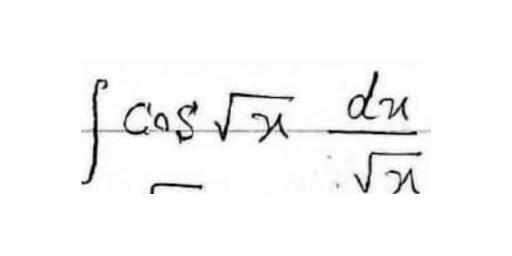 ∫ cos √x dx/√x